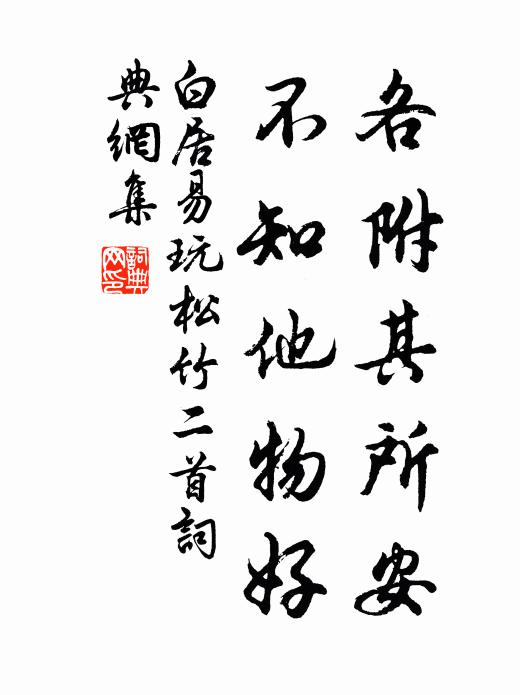 各附其所安
不知他物好
白居易玩松竹二首詞
典網集
詞典
网印